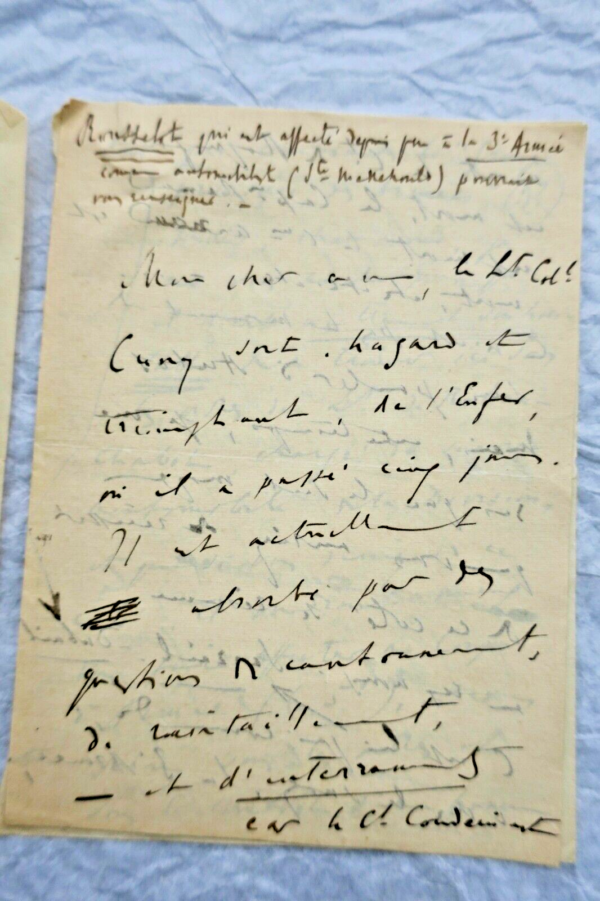 Rousselot qui est affecté depuis peu à la 3e Armée
comme automobilist (Ste Menehould) pourrait
vous renseigner. _
Mon cher ami, le Lt. Col.l
Cuny sort, hagard et
triomphant, de l'Enfer,
où il a passé cinq jours.
Il est actuellement
absorbé par des
questions de cantonnement,
de ravitaillement,
— et d'enterrements
car le Ct